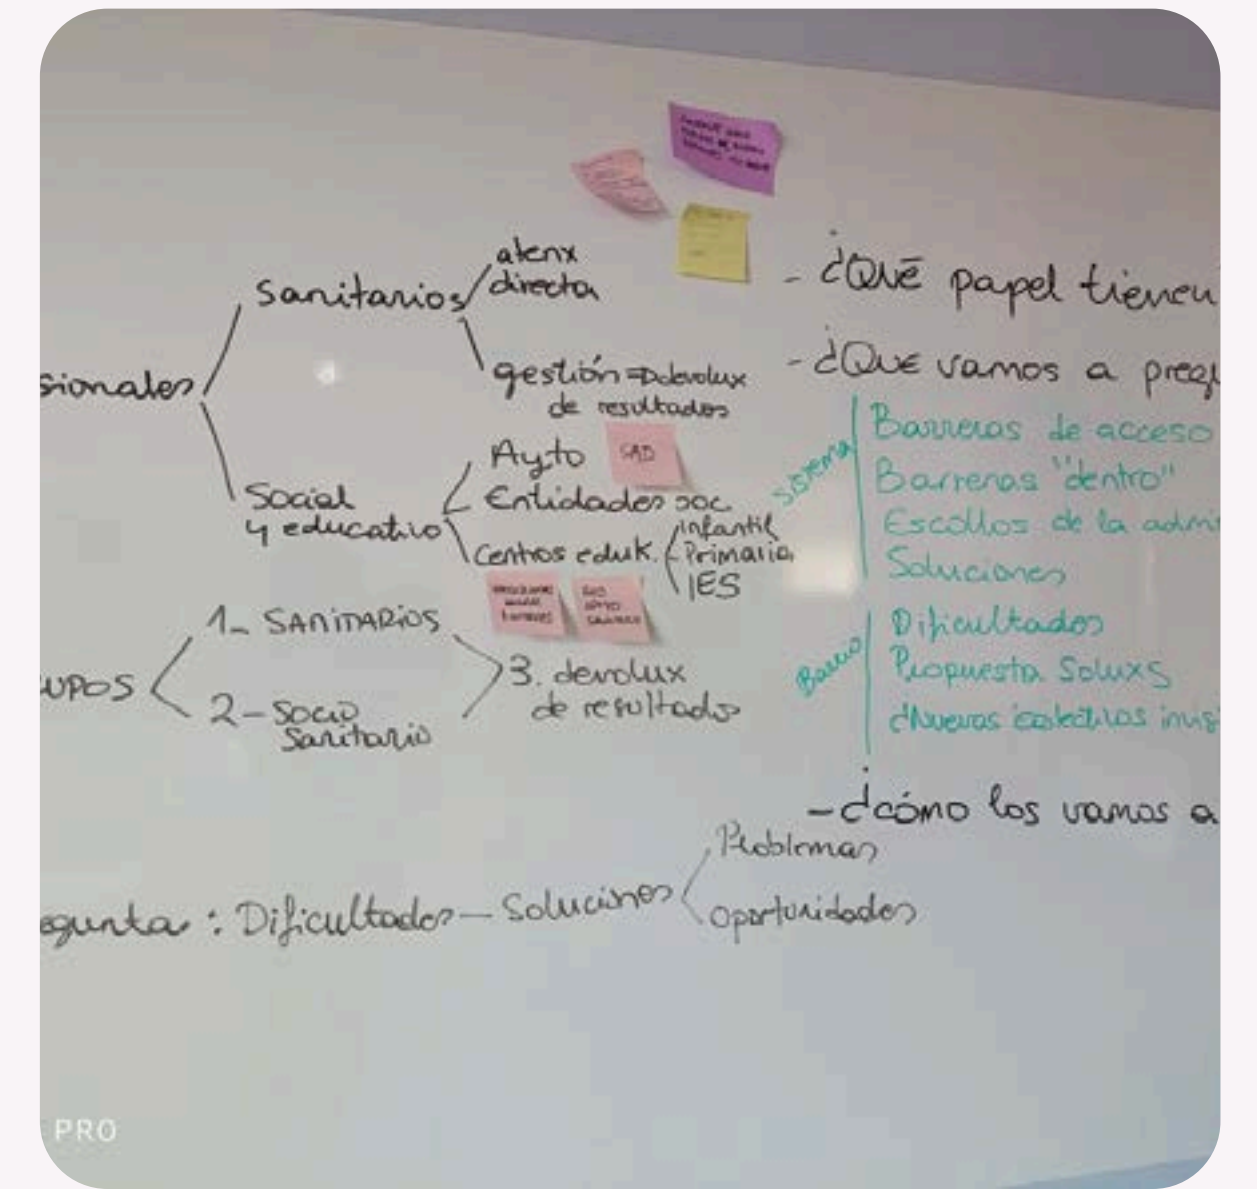 atenx
directa
sanitarios
gestión => devolux
de resultados
sionales
Ayto
SAD
Entidades soc.
Social
y educativo
Centros eduk.
Infantil
Primaria
IES
1- SANITARIOS
UPOS
2- Socio
Sanitario
3. devolux
de resultados
egunta: Dificultades - Soluciones
Problemas
Oportunidades
- ¿Qué papel tienen
- ¿Qué vamos a preg
Sistema
Barreras de acceso
Barreras "dentro"
Escollos de la admi
Soluciones
Barrio
Dificultades
Propuesta Soluxs
¿Nuevos colectivos invis
- ¿cómo los vamos a
PRO